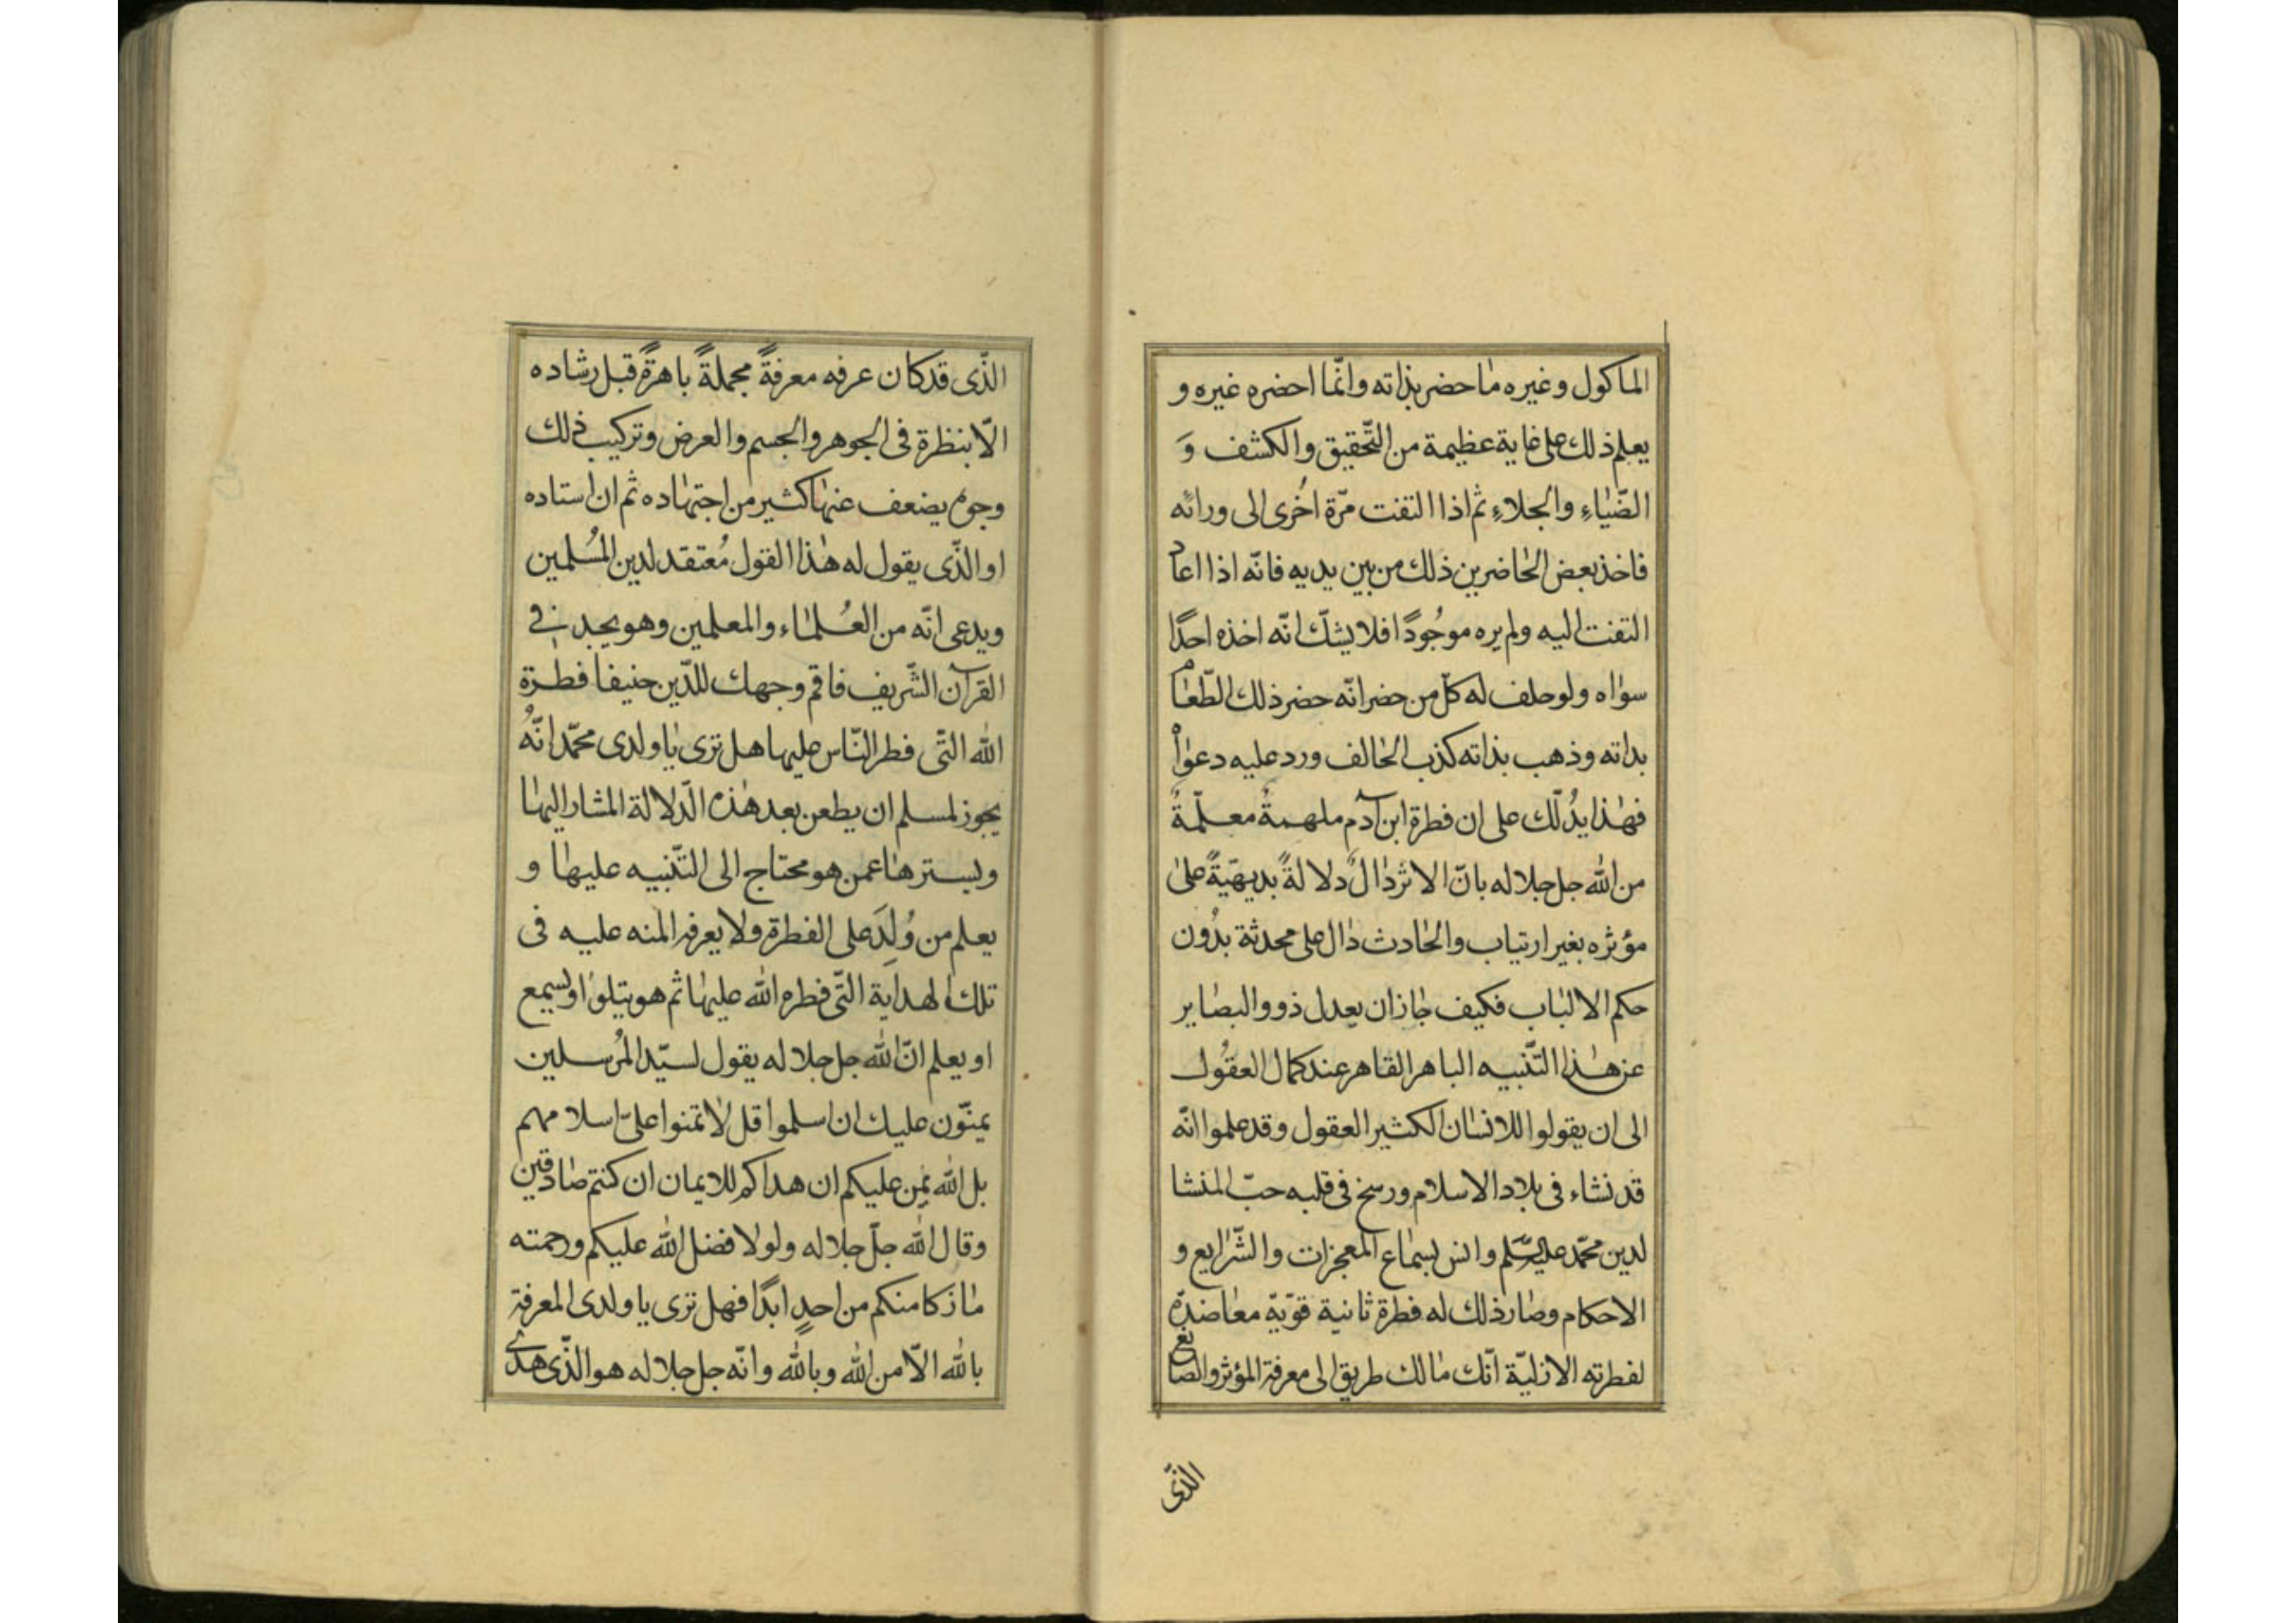 الماكول وغيره ماحضر بذاته وانّما احضره غيره و
يعلم ذلك على غاية عظيمة من التّحقيق والكشف وَ
الضّياءِ والجلاءِ ثم اذا التفت مرّة اُخرى الى ورائه
فاخذ بعض الحاضرين ذلك من بين يديه فانّه اذا اعاد
التفت اليه ولم يره موجُودًا فلا يشكّ انّه اخذه احدًا
سواه ولو حلف له كلّ من حضر انّه حضر ذلك الطّعام
بذاته وذهب بذاته كذب الحالف ورد عليه دعواه
فهذا يدُلّك على ان فطرة ابن آدم ملهمةٌ معلّمةٌ
من الله جل جلاله بانّ الاثر دالٌ دلالةً بديهيّةً على
مؤثره بغير ارتياب والحادث دال على محدثة بدُون
حكم الالباب فكيف جاز ان يعدل ذوو البصاير
عن هذا التّنبيه الباهر القاهر عند كمال العقُول
الى ان يقولوا للانسان الكثير العقول وقد علموا انّه
قد نشاء فى بلاد الاسلام ورسخ فى قلبه حبّ المنشا
لدين محمّد عليه السّلم وانس بسماع المعجزات والشّرايع و
الاحكام وصار ذلك له فطرة ثانية قويّة معاضدة
لفطرته الازليّة انّك مالك طريق الى معرفة المؤثر والصانع
الذّى
الذّى قد كان عرفه معرفةً مجملةً باهرةً قبل رشاده
الّا بنظرة فى الجوهر والجسم والعرض وتركيب ذلك
وجوه يضعف عنها كثير من اجتهاده ثم ان استاده
او الذّى يقول له هذا القول مُعتقد لدين المُسلمين
ويدعى انّه من العُلماء والمعلمين وهو يجد فى
القرآن الشّريف فاقم وجهك للدّين حنيفا فطرة
الله التّى فطر النّاس عليها هل ترى يا ولدى محمّد انّهُ
يجوز لمسلم ان يطعن بعد هذه الدّلالة المشار اليها
ويسترها عمن هو محتاج الى التّنبيه عليها و
يعلم من وُلِدَ على الفطرة ولا يعرفه المنه عليه فى
تلك الهداية التّى فطره الله عليها ثم هو يتلوا او يسمع
او يعلم انّ الله جل جلاله يقول لسيّد المُرسلين
يمنّون عليك ان اسلموا قل لا تمنوا علىّ اسلامهم
بل الله يمن عليكم ان هداكم للايمان ان كنتم صادقين
وقال الله جلّ جلاله ولولا فضل الله عليكم ورحمته
ما زكا منكم من احدٍ ابدًا فهل ترى يا ولدى المعرفة
بالله الّا من الله وبالله وانّه جل جلاله هو الذّى هدى